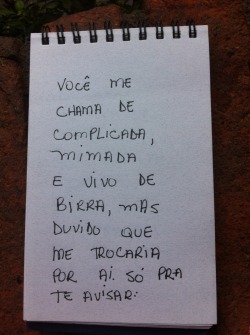 VOCÊ ME
CHAMA DE
COMPLICADA,
MIMADA
E VIVO DE
BIRRA, MAS
DUVIDO QUE
ME TROCARIA
POR AÍ. SÓ PRA
TE AVISAR: